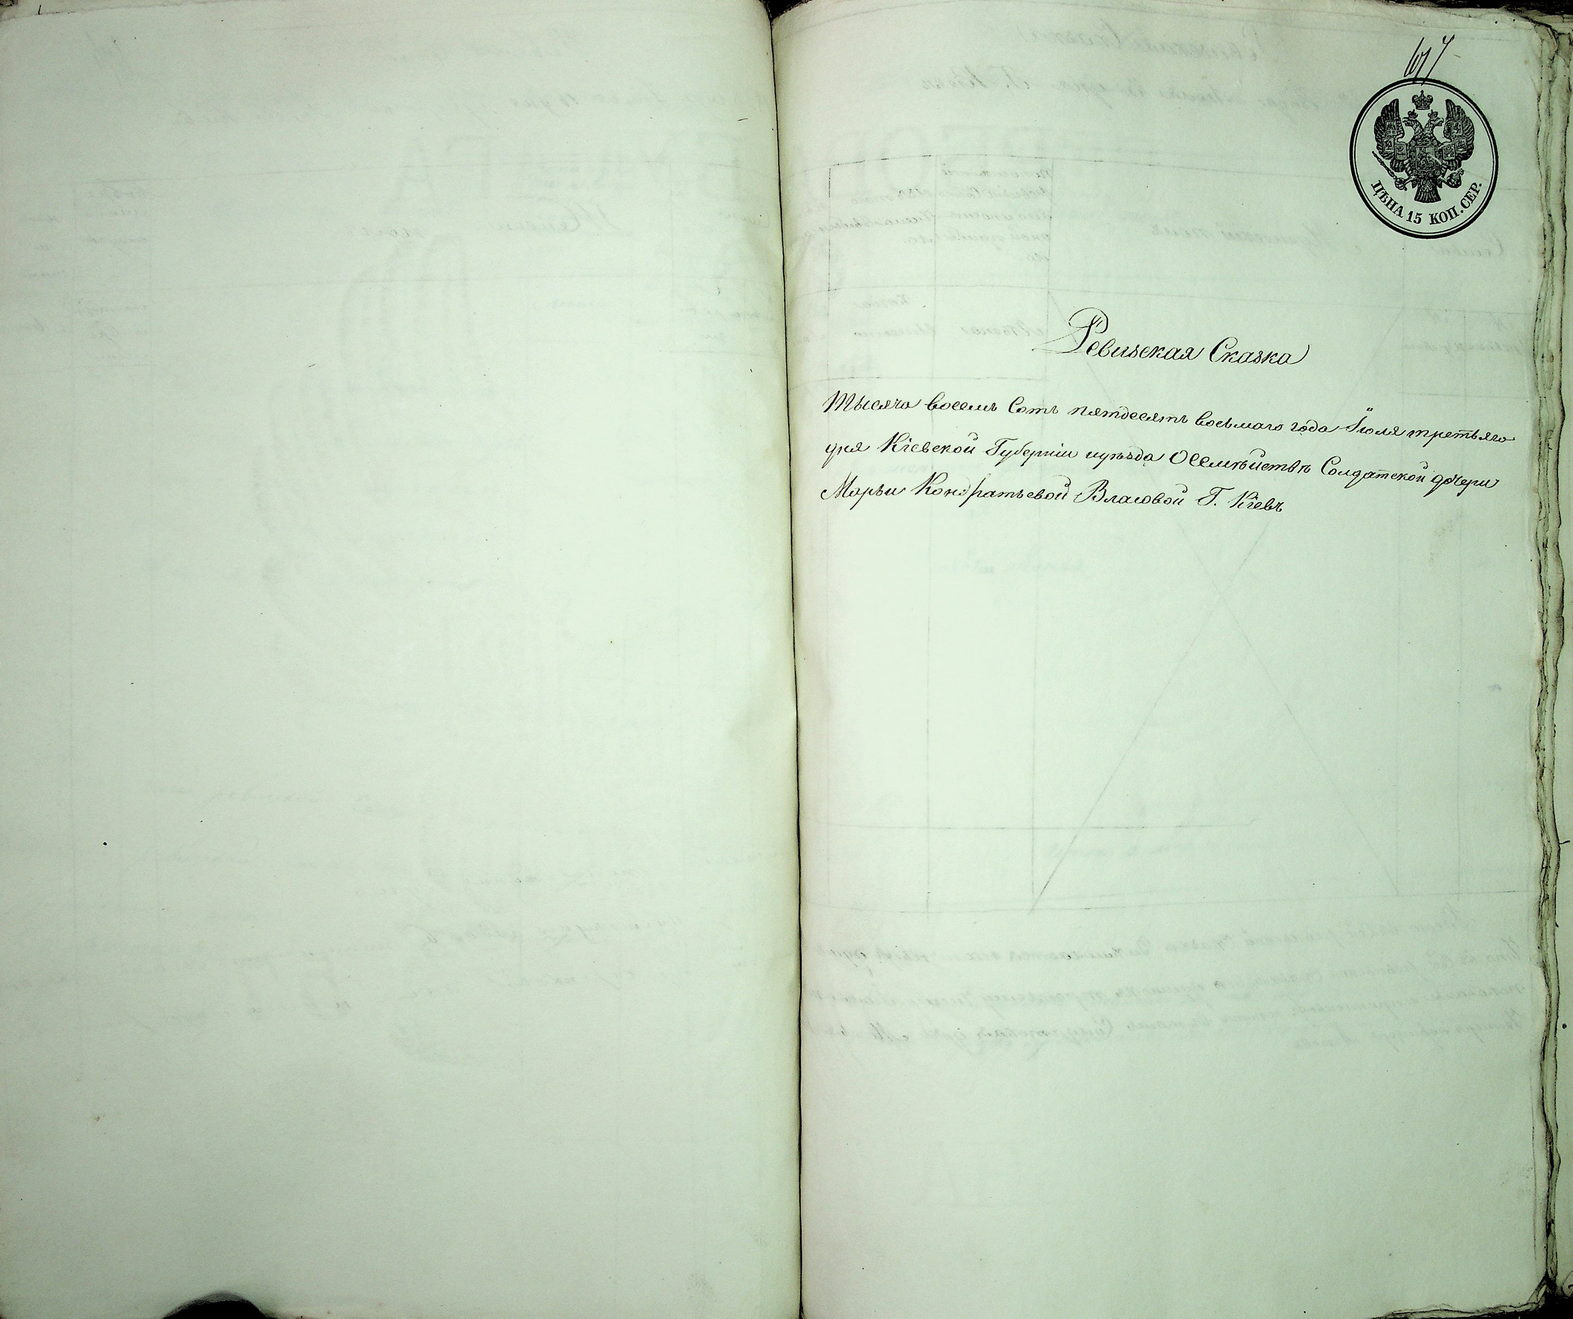 ЦѢНА 15 КОП. СЕР.
Ревизская Сказка
Тысяча восемь Сотъ пятдесятъ восьмаго года Іюля третьяго
дня Кіевской Губерніи иуѣзда Осемѣйствѣ Солдатской дочери
Марьи Кондратьевой Власовой Г. Кіевъ